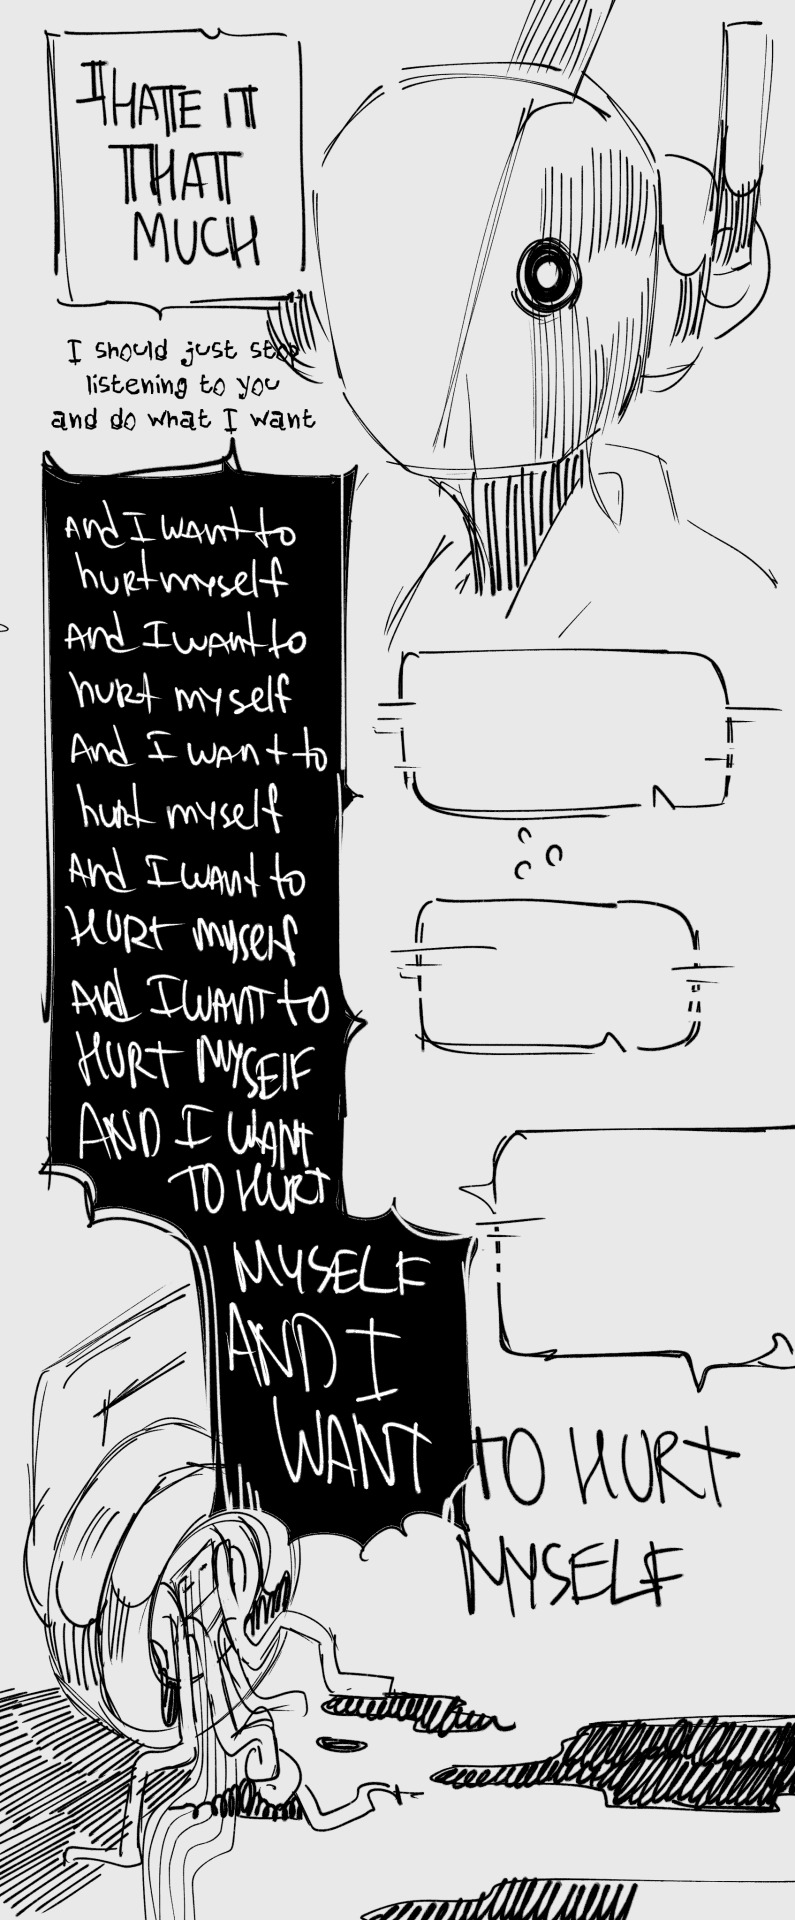 I HATE IT
THAT
MUCH
I should just stop
listening to you
and do what I want
And I want to
hurt myself
And I want to
hurt myself
And I want to
hurt myself
And I want to
HURT myself
And I WANT to
HURT MYSElF
AND I WANT
TO HURT
MYSELF
AND I
WANT TO HURT
MYSELF